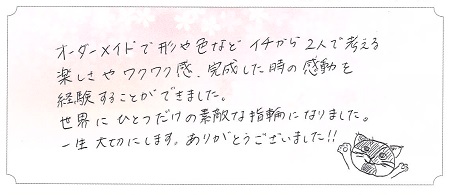 オーダーメイドで形や色など イチから2人で考える
楽しさやワクワク感、完成した時の感動を
経験することができました。
世界にひとつだけの素敵な指輪になりました。
一生大切にします。ありがとうございました!!